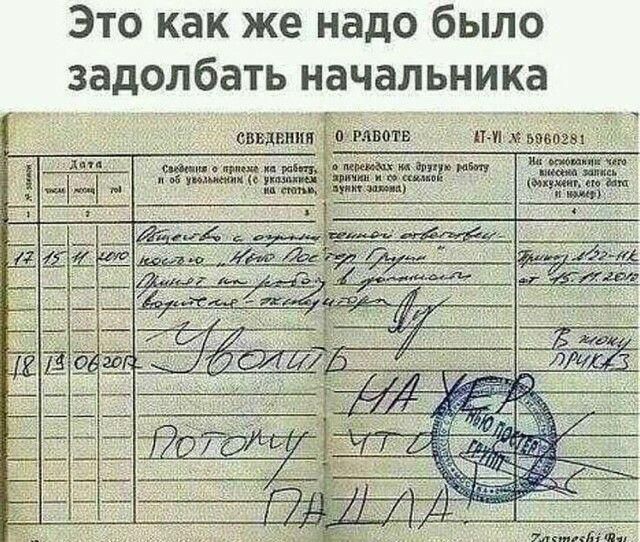 Это как же надо было
задолбать начальника
СВЕДЕНИЯ О РАБОТЕ АТ-VI № 5960281
№ записи
Дата
число месяц год
Сведения о приеме на работу, о переводах на другую работу
и об увольнении (с указанием причин и со ссылкой
на статью, пункт закона)
На основании чего
внесена запись
(документ, его дата
и номер)
1 2 3 4
Общество с ограниченной ответствен-
17 15 11 2010 ностью „Нью Постер Групп" Приказ №22-нк
Принят на работу в должности от 15.11.2010
водителя-экспедитора
В жопу
18 19 06 2012 Уволить ПРИКАЗ
НАХЕР
Потому что
ПАДЛА!
НЬЮ ПОСТЕР
ГРУПП
Zasmeshi.Ru